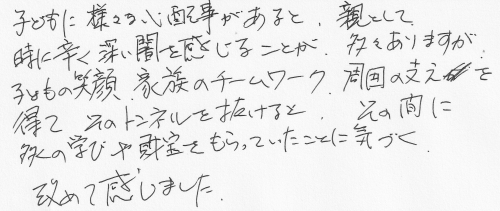 子どもに様々な心配事があると、親として
時に辛く深い闇を感じることが多々ありますが
子どもの笑顔 家族のチームワーク、周囲の支えを
得て そのトンネルを抜けると、その間に
多くの学びや財宝をもらっていたことに気づく、
改めて感じました.